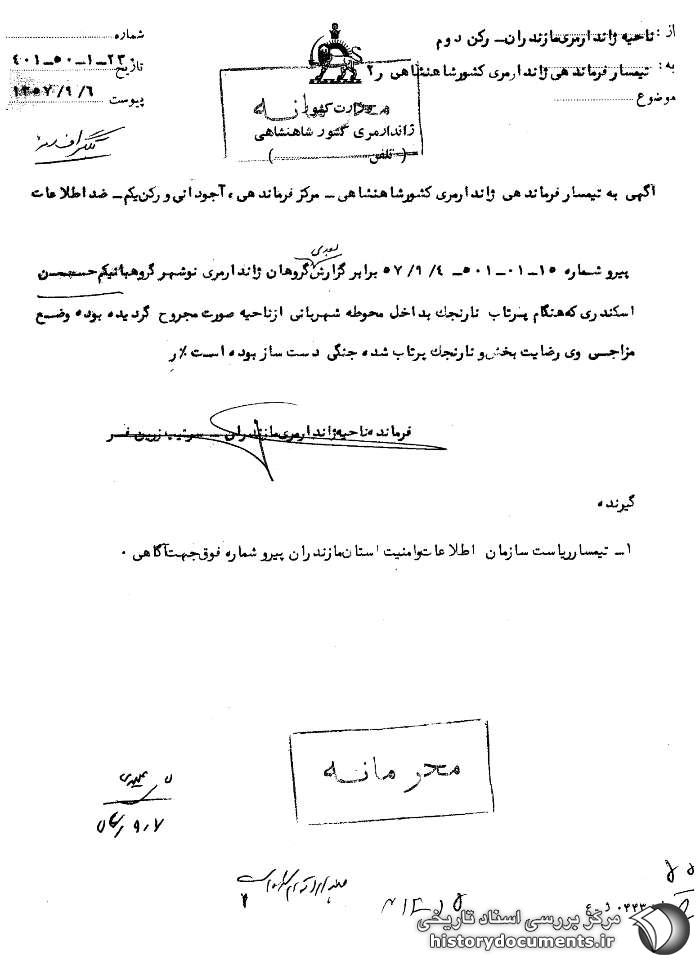 از : ناحیه ژاندارمری مازندران ـ رکن دوم
به : تیمسار فرماندهی ژاندارمری کشور شاهنشاهی ر۲
موضوع
وزارت کشور
محرمانه
ژاندارمری کشور شاهنشاهی
( تلفن )
شماره ۴۰۱ـ ۵۰ـ ۱ـ ۲۳
تاریخ ۱۳۵۷/۹/۶
پیوست
آگهی به تیمسار فرماندهی ژاندارمری کشور شاهنشاهی ـ مرکز فرماندهی، آجودانی و رکن یکم ـ ضد اطلاعات
پیرو شماره ۱۵ـ ۰۱ـ ۵۰۱ـ ۵۷/۹/۴ برابر گزارش بعدی گروهان ژاندارمری نوشهر گروهبانیکم حسن
اسکندری که هنگام پرتاب نارنجک بداخل محوطه شهربانی از ناحیه صورت مجروح گردیده بوده وضع
مزاجی وی رضایت بخش و نارنجک پرتاب شده جنگی دست ساز بوده است ٪ر
فرمانده ناحیه ژاندارمری مازندران ـ سرتیپ زرین فر
گیرنده
۱ـ تیمسار ریاست سازمان اطلاعات و امنیت استان مازندران پیرو شماره فوق جهت آگاهی ۰
محرمانه
مرکز بررسی اسناد تاریخی
historydocuments.ir